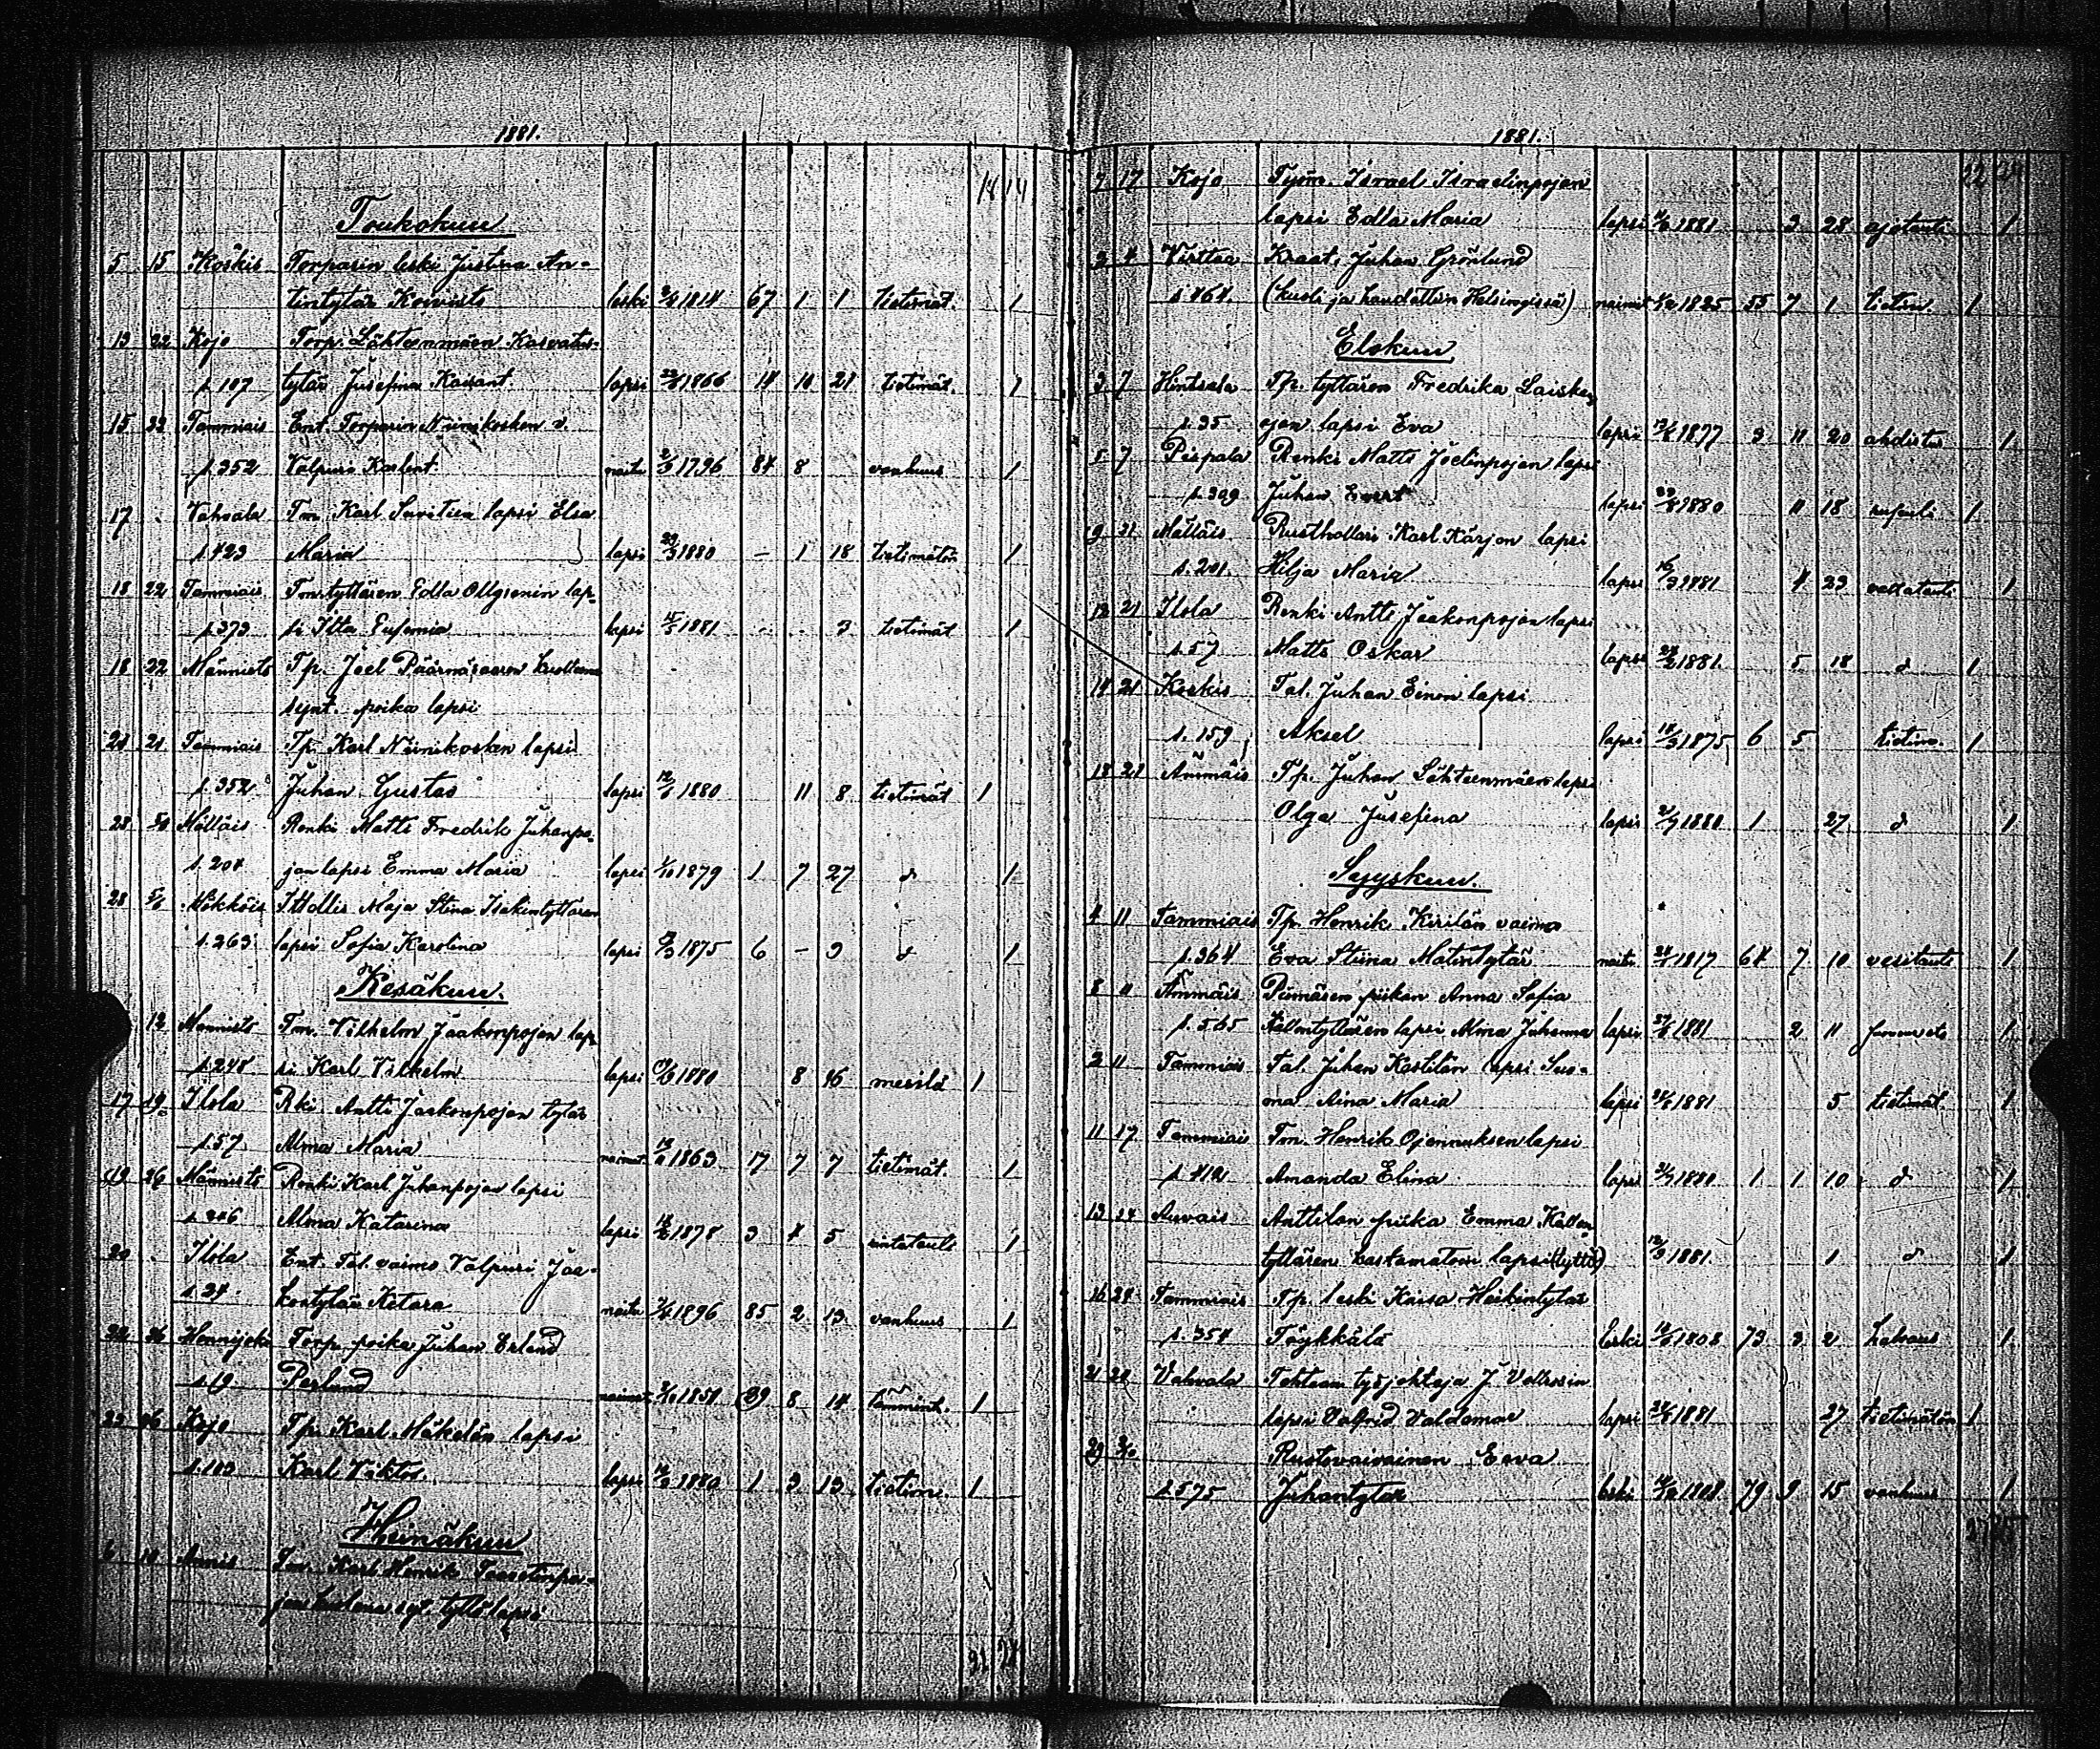 1881.
14 14
Toukokuu
5 15 Koskis Torparin leski Justina An-
tintytär Koivisto leski 1814 67 1 1 tietimät. 1
13 22 Kojo Torp. Lähteenmäen Kasvatus-
p.107 tytär Josefina Kaisant. lapsi 1866 14 10 21 tietimät. 1
15 22 Tammiais Ent. Torparin Niinikosken v.
p.352 Valpuri Kaslent. naitu 1796 84 8 vanhuus 1
17 . Vahvala Tm. Karl Suvitien lapsi Elsa
p.423 Maria lapsi 1880 - 1 18 tietimätön 1
18 22 Tammiais Tm. tyttären Edla Ollgrenin lap-
p.373 si Itta Eufemia lapsi 15/5 1881 . . 3 tietimät 1
18 22 Männistö Tp. Joel Päärnäsaaren kuolleena
synt. poika lapsi
21 21 Tammiais Tp. Karl Niinikosken lapsi
p.352 Juhan Gustaf lapsi 1880 11 8 tietimät 1
28 5/6 Mälläis Renki Matts Fredrik Juhanpo-
p.204 jan lapsi Emma Maria lapsi 1/10 1879 1 7 27 d 1
28 5/6 Mökköis Itsellis Maja Stina Isakintyttären
p.263 lapsi Sofia Karolina lapsi 1875 6 - 3 d 1
Kesäkuu.
12 Männistö Tm. Vilhelm Jaakonpojan lap-
p.248 si Karl Vilhelm lapsi 1880 8 16 mesilä 1
17 19 Ilola Rki Antti Jaakonpojan tytär
p.57 Alma Maria naimat. 1863 17 7 7 tietimät. 1
19 26 Männistö Renki Karl Juhanpojan lapsi
p.246 Alma Katarina lapsi 1878 3 4 5 rintatauti 1
20 . Ilola Ent. Tal. vaimo Valpuri Jaa-
p.24 kontytär Ketara naitu 1896 85 2 13 vanhuus 1
22 26 Hennijoki Torp. poika Juhan Erland
p.19 Perlund naimat. 1851 29 8 14 1
22 26 Kojo Tp. Karl Mäkelän lapsi
p.103 Karl Viktor. lapsi 1880 1 3 13 tietim. 1
Heinäkuu
6 10 Karl Henrik
jan kuolena syt. tyttölapsi
22 24
1881.
22 24
7 17 Kojo Työm. Israel Israelinpojan
lapsi Edla Maria lapsi 1881 3 28 ajotauti 1
2 4 Virttaa Kraat. Juhan Grönlund
p.464. (kuoli ja haudattiin Helsingissä) naimat 1825 55 7 1 tietim. 1
Elokuu
3 7 Hintsala Tp. tyttären Fredrika Laiska-
p.35 ojan lapsi Eva lapsi 1877 3 11 20 ahdistus 1
5 7 Piispala Renki Matts Joelinpojan lapsi
p.309 Juhan Evert lapsi 1880 11 18 1
9 21 Mälläis Rusthollari Karl Kärjen lapsi
p.201. Hilja Maria lapsi 16/3 1881 4 23 vattatauti 1
12 21 Ilola Renki Antti Jaakonpojan lapsi
p.57 Matts Oskar lapsi 1881. 5 18 d 1
14 21 Koskis Tal. Juhan Einon lapsi
p.159 Aksel lapsi 1875 6 5 tietim. 1
18 21 Ämmäis Tp. Juhan Lähteenmäen lapsi
Olga Josefina lapsi 1880 1 27 d 1
Syyskuu.
4 11 Tammiais Tp. Henrik Kirilän vaimo
p.364 Eva Stiina Matintytär naitu 1817 64 7 10 vesitauti 1
8 11 Ämmäis Piimäsen piikan Anna Sofia
p.565 Kallentyttären lapsi Alma Johanna lapsi 1881 2 11 1
2 11 Tammiais Tal. Juhan Kastilan lapsi Sus-
ana Aina Maria lapsi 1881 5 tietimät. 1
11 17 Tammiais Tm. Henrik Ojannuksen lapsi
p.412 Amanda Elina lapsi 1880 1 1 10 d 1
13 Auvais Anttilan piika Emma Kallen-
tyttären kastamatoin lapsi (tyttö) 12/9 1881. 1 d 1
16 24 Tammiais Tp. leski Kaisa Heikintytär
p.354 Töykkälä leski 1808 73 3 2 halvaus 1
21 28 Vahvala Tehtaan työjohtaja J. Vollrosin
lapsi Valfrid Valdemar lapsi 1881 27 tietimätön 1
29 2/10 Rustovaivainen Eeva
p.575 Juhantytär leski 1808 79 9 15 vanhuus 1